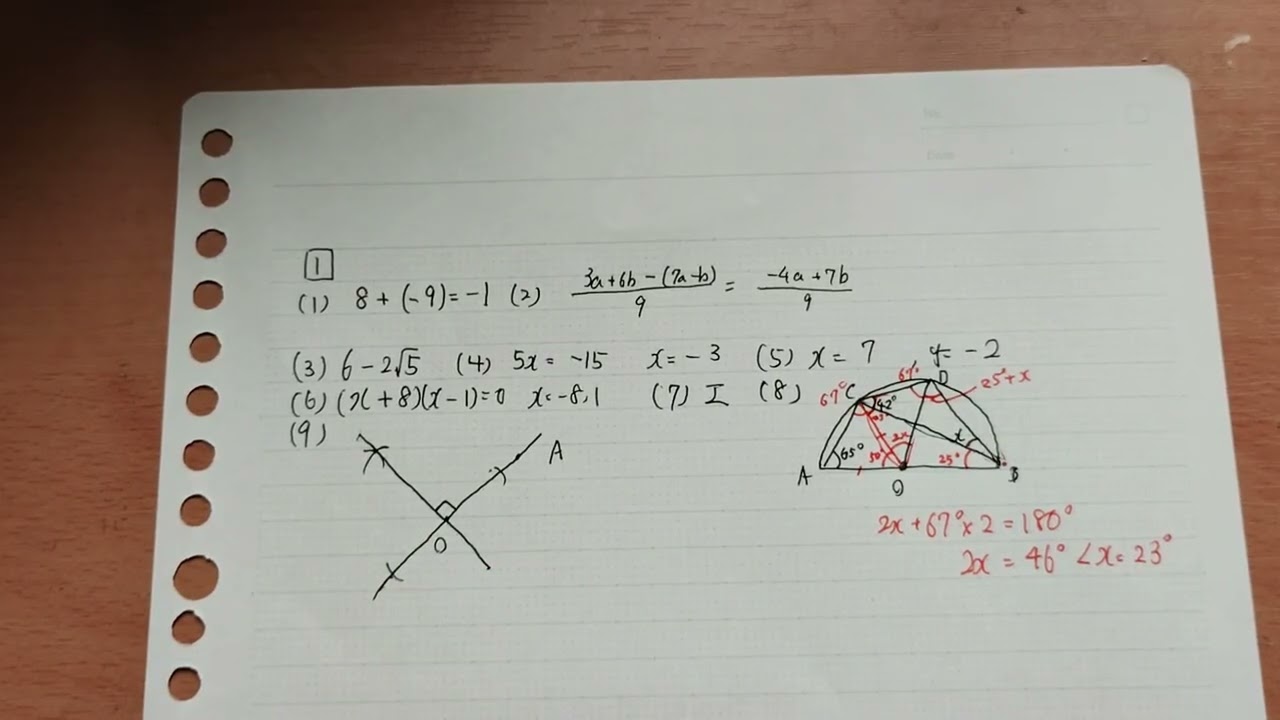 No.
Date
1
(1) 8 + (-9) = -1 (2) 3a+6b-(7a-b)/9 = -4a+7b/9
(3) 6-2√5 (4) 5x = -15 x = -3 (5) x = 7 y = -2
(6) (x+8)(x-1)=0 x=-8,1 (7) エ (8)
67° C 67° D 25°+x
42°
65° 50° 2x 25° x
A O B
(9)
A
O
2x+67°×2=180°
2x = 46° ∠x=23°